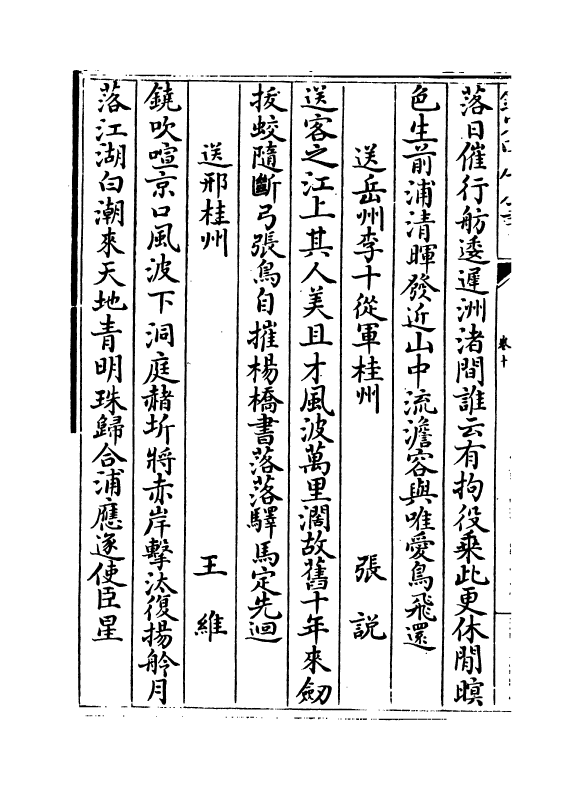 卷十
落日催行舫逶遲洲渚間誰云有拘役乘此更休閒暝
色生前浦清暉發近山中流澹容與唯愛鳥飛還
送岳州李十從軍桂州 張說
送客之江上其人美且才風波萬里濶故舊十年來劔
拔蛟隨斷弓張鳥自摧楊橋書落落驛馬定先迴
送邢桂州 王維
鐃吹喧京口風波下洞庭赭圻將赤岸擊汰復揚舲月
落江湖白潮來天地青明珠歸合浦應逐使臣星